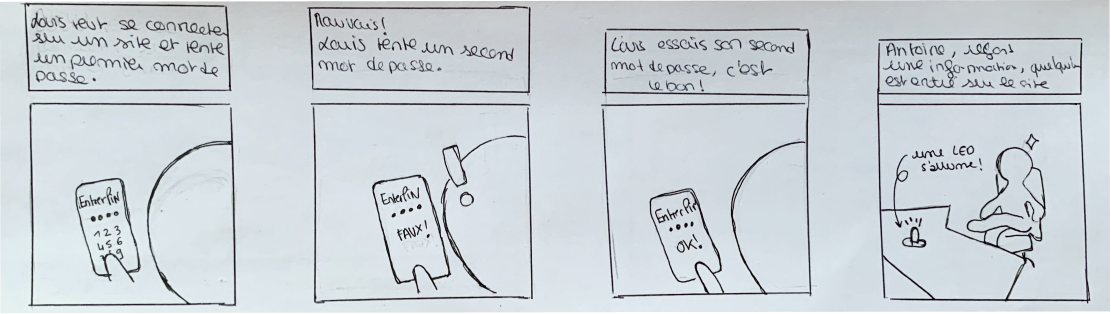 Louis veut se connecter
sur un site et tente
un premier mot de
passe.
Enter PiN
1 2 3
4 5 6
9
Mauvais!
Louis tente un second
mot de passe.
Enter PiN
FAUX!
Louis essais son second
mot de passe, c'est
le bon!
Enter Pin
OK!
Antoine, reçois
une information, quelqu'un
est entré sur le site
une LED
s'allume!